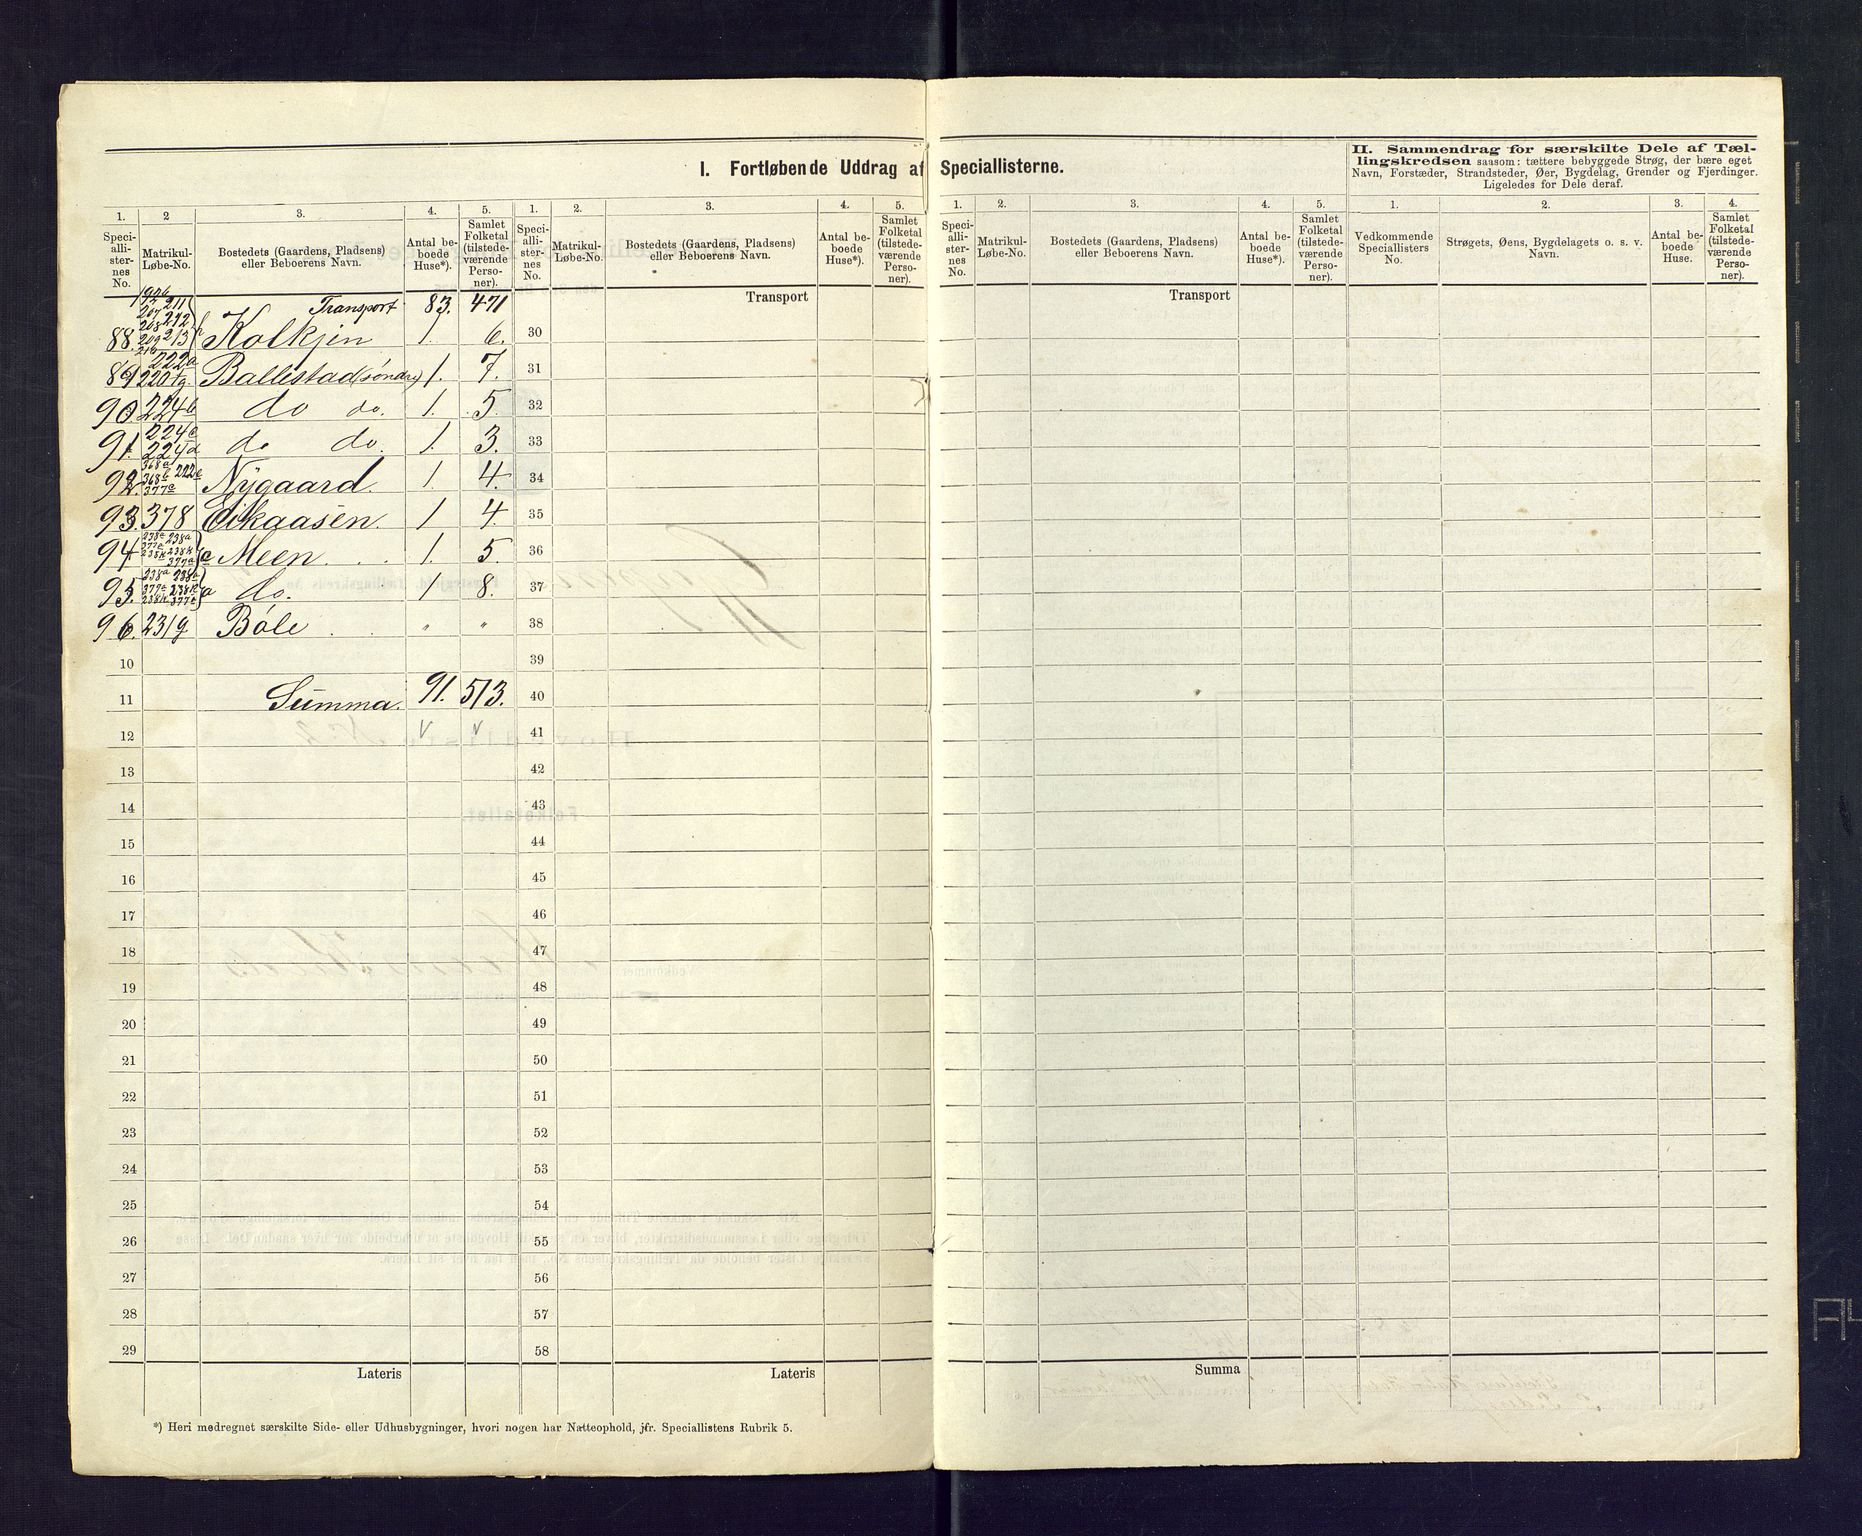 I. Fortløbende Uddrag af Speciallisterne.
II. Sammendrag for særskilte Dele af Tællingskredsen saasom: tættere bebyggede Strøg, der bære eget
Navn, Forstæder, Strandsteder, Øer, Bygdelag, Grender og Fjerdinger.
Ligeledes for Dele deraf.
1. 2 3. 4. 5. 1. 2. 3. 4. 5. 1. 2. 3. 4. 5. 1. 2. 3. 4.
Speciallisternes No. Matrikul-Løbe-No. Bostedets (Gaardens, Pladsens) eller Beboerens Navn. Antal beboede Huse*). Samlet Folketal (tilstedeværende Personer).
Speciallisternes No. Matrikul-Løbe-No. Bostedets (Gaardens, Pladsens) eller Beboerens Navn. Antal beboede Huse*). Samlet Folketal (tilstedeværende Personer).
Speciallisternes No. Matrikul-Løbe-No. Bostedets (Gaardens, Pladsens) eller Beboerens Navn. Antal beboede Huse*). Samlet Folketal (tilstedeværende Personer).
Vedkommende Speciallisters No. Strøgets, Øens, Bygdelagets o. s. v. Navn. Antal beboede Huse. Samlet Folketal (tilstedeværende Personer).
Transport 83. 471 Transport Transport
88. Kolkjen 1. 6. 30
89 222a 220 Ballestad (söndre) 1. 7. 31
90. 224b do do. 1. 5. 32
91. 224c 224d do do. 1. 3. 33
92. 368a 368b 222e 377c Nygaard. 1. 4. 34
93. 378 Eikaasen. 1 4. 35
94 c Meen . . . 1. 5. 36
95. a do. 1 8. 37
96. 231g Böle . . . " " 38
10 39
11 Summa. 91. 513. 40
12 41
13 42
14 43
15 44
16 45
17 46
18 47
19 48
20 49
21 50
22 51
23 52
24 53
25 54
26 55
27 56
28 57
29 58
Lateris Lateris Summa
*) Heri medregnet særskilte Side- eller Udhusbygninger, hvori nogen har Natteophold, jfr. Speciallistens Rubrik 5.